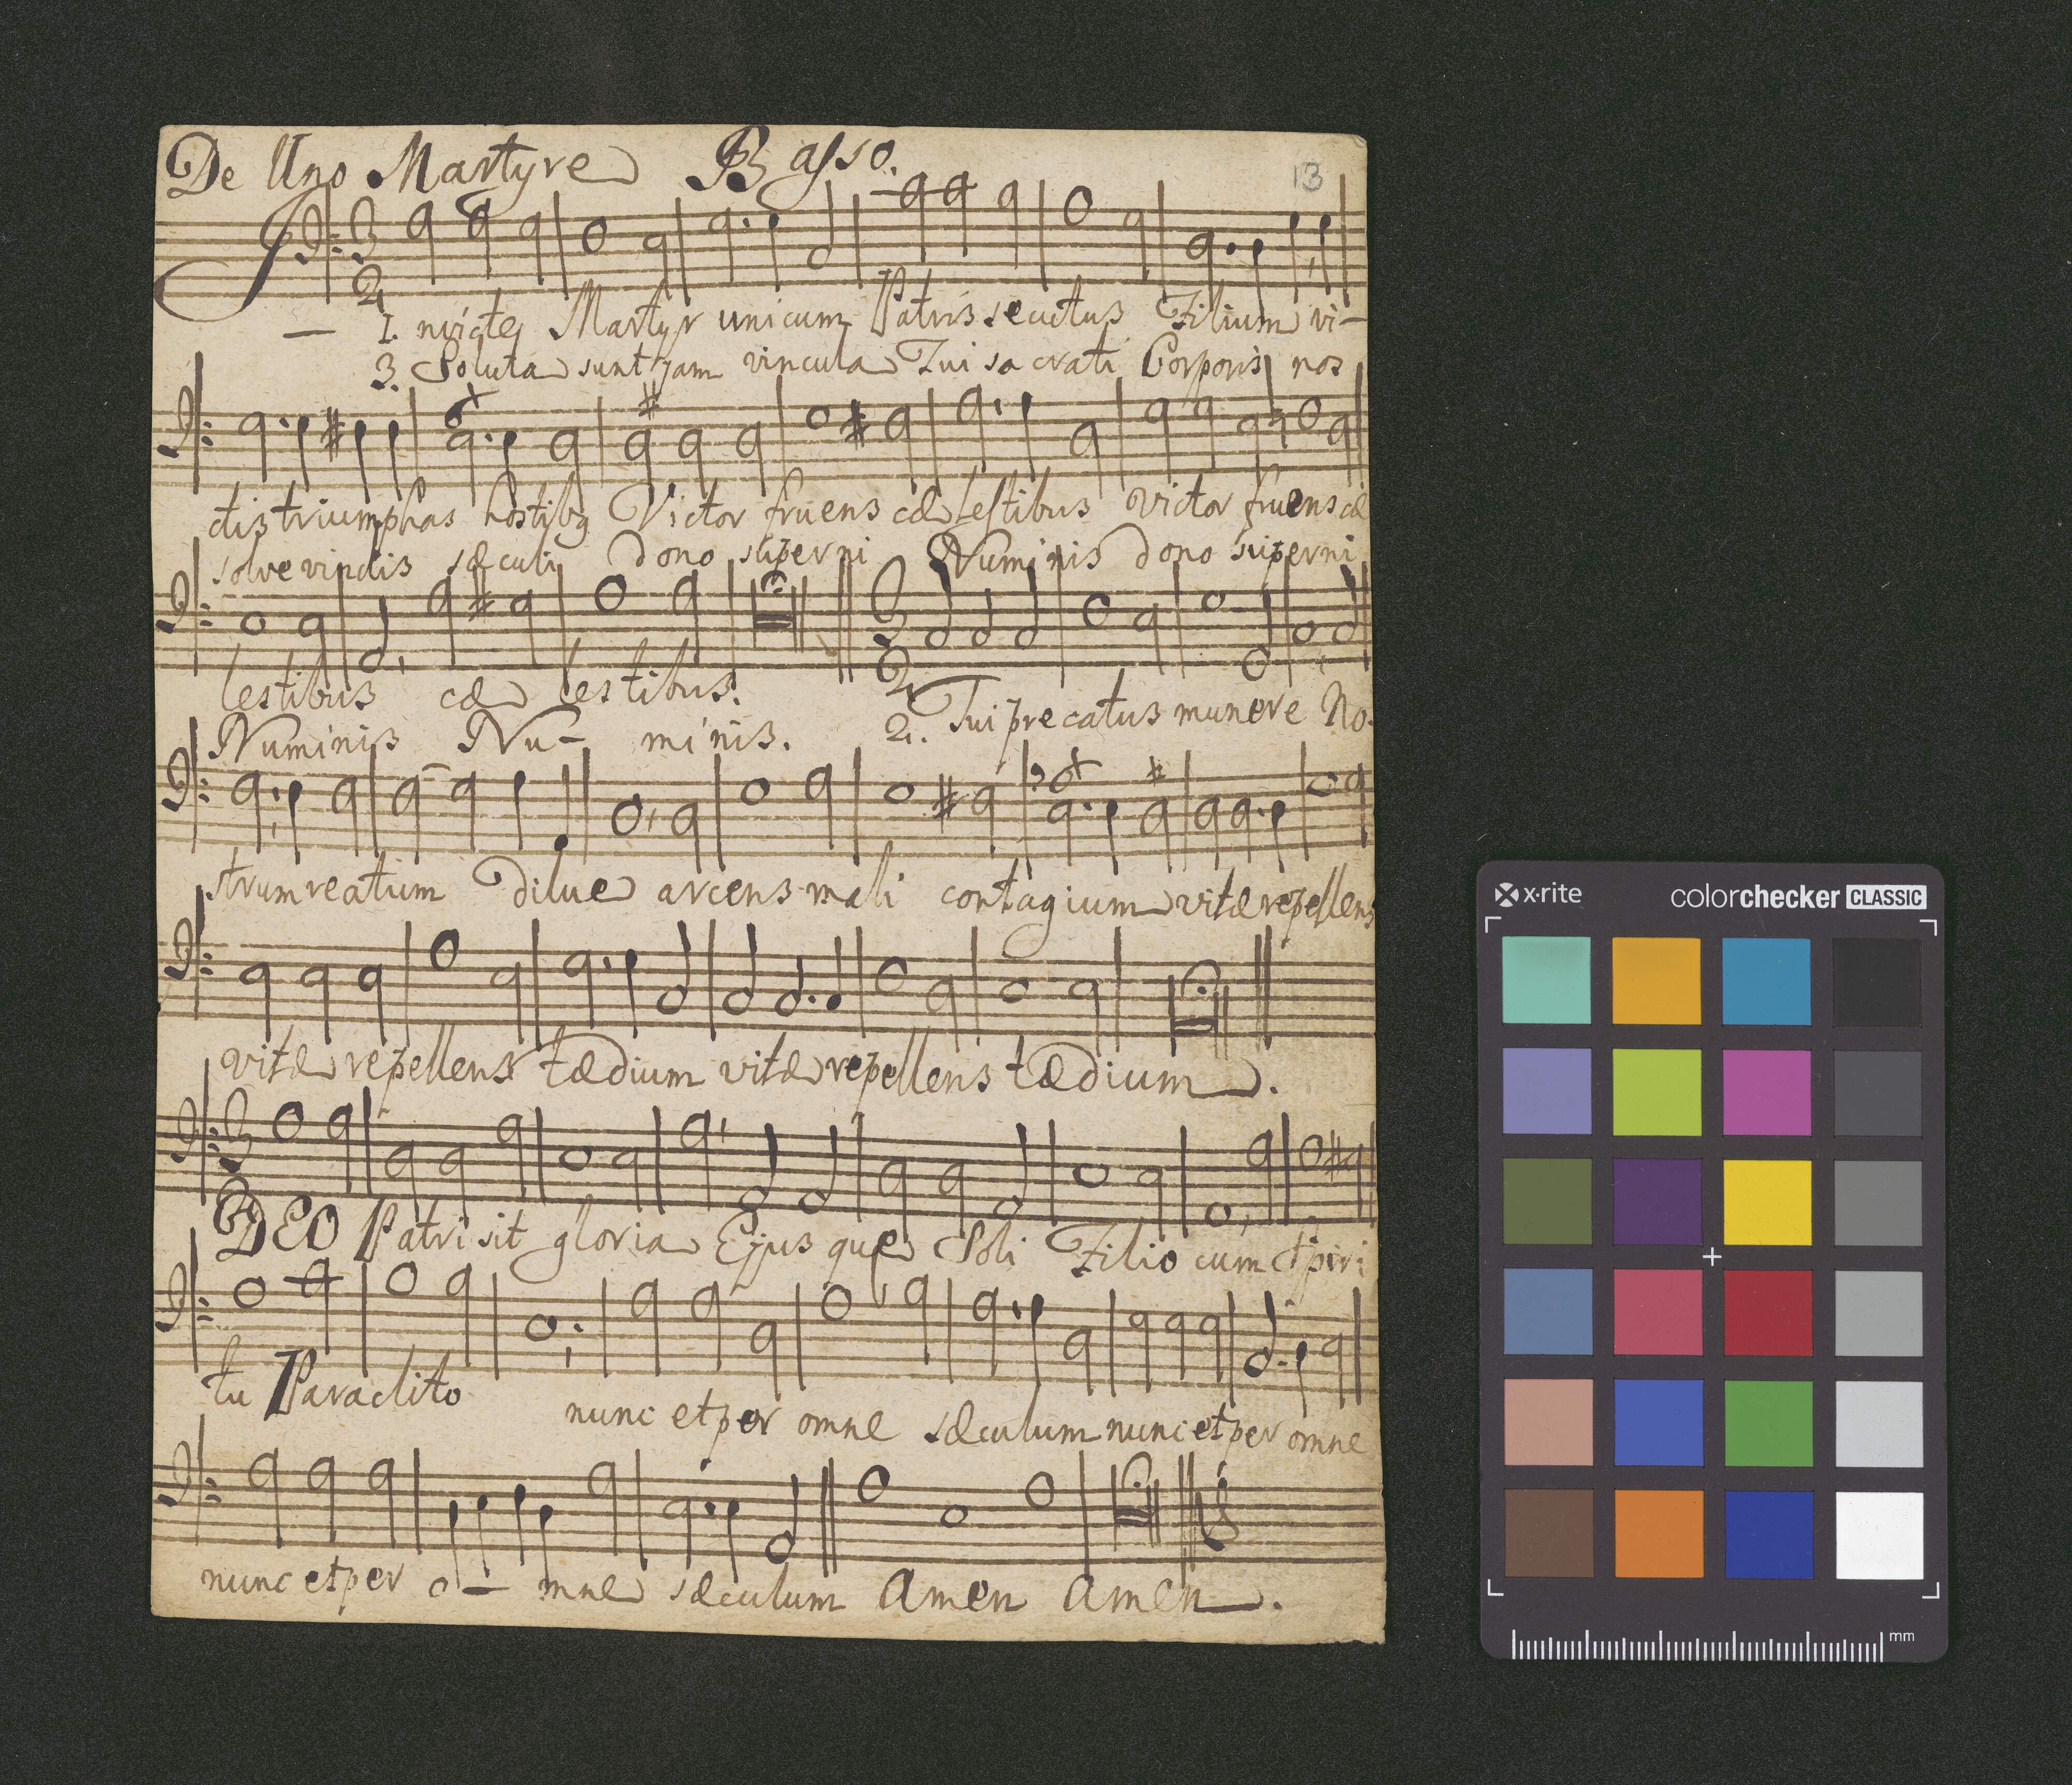 De Uno Martyre Basso.
13
I. nvicte Martyr unicum Patris secutus Filium vi-
3. Soluta sunt jam vincula Tui sacrati Corporis nos
ctis triumphas hostibg Victor fruens cælestibus victor fruens cæ
solve vinclis sæculi dono superni Numinis dono superni
lestibus cæ lestibus.
2. Tui precatus munere No-
Numinis Nu- minis.
strum reatum dilue arcens mali contagium vitæ repellens
vitæ repellens tædium vitæ repellens tædium.
DEO Patri sit gloria Ejus que Soli Filio cum Spiri
tu Paraclito nunc et per omne sæculum nunc et per omne
nunc et per o- mne sæculum Amen Amen.
x·rite colorchecker CLASSIC
mm